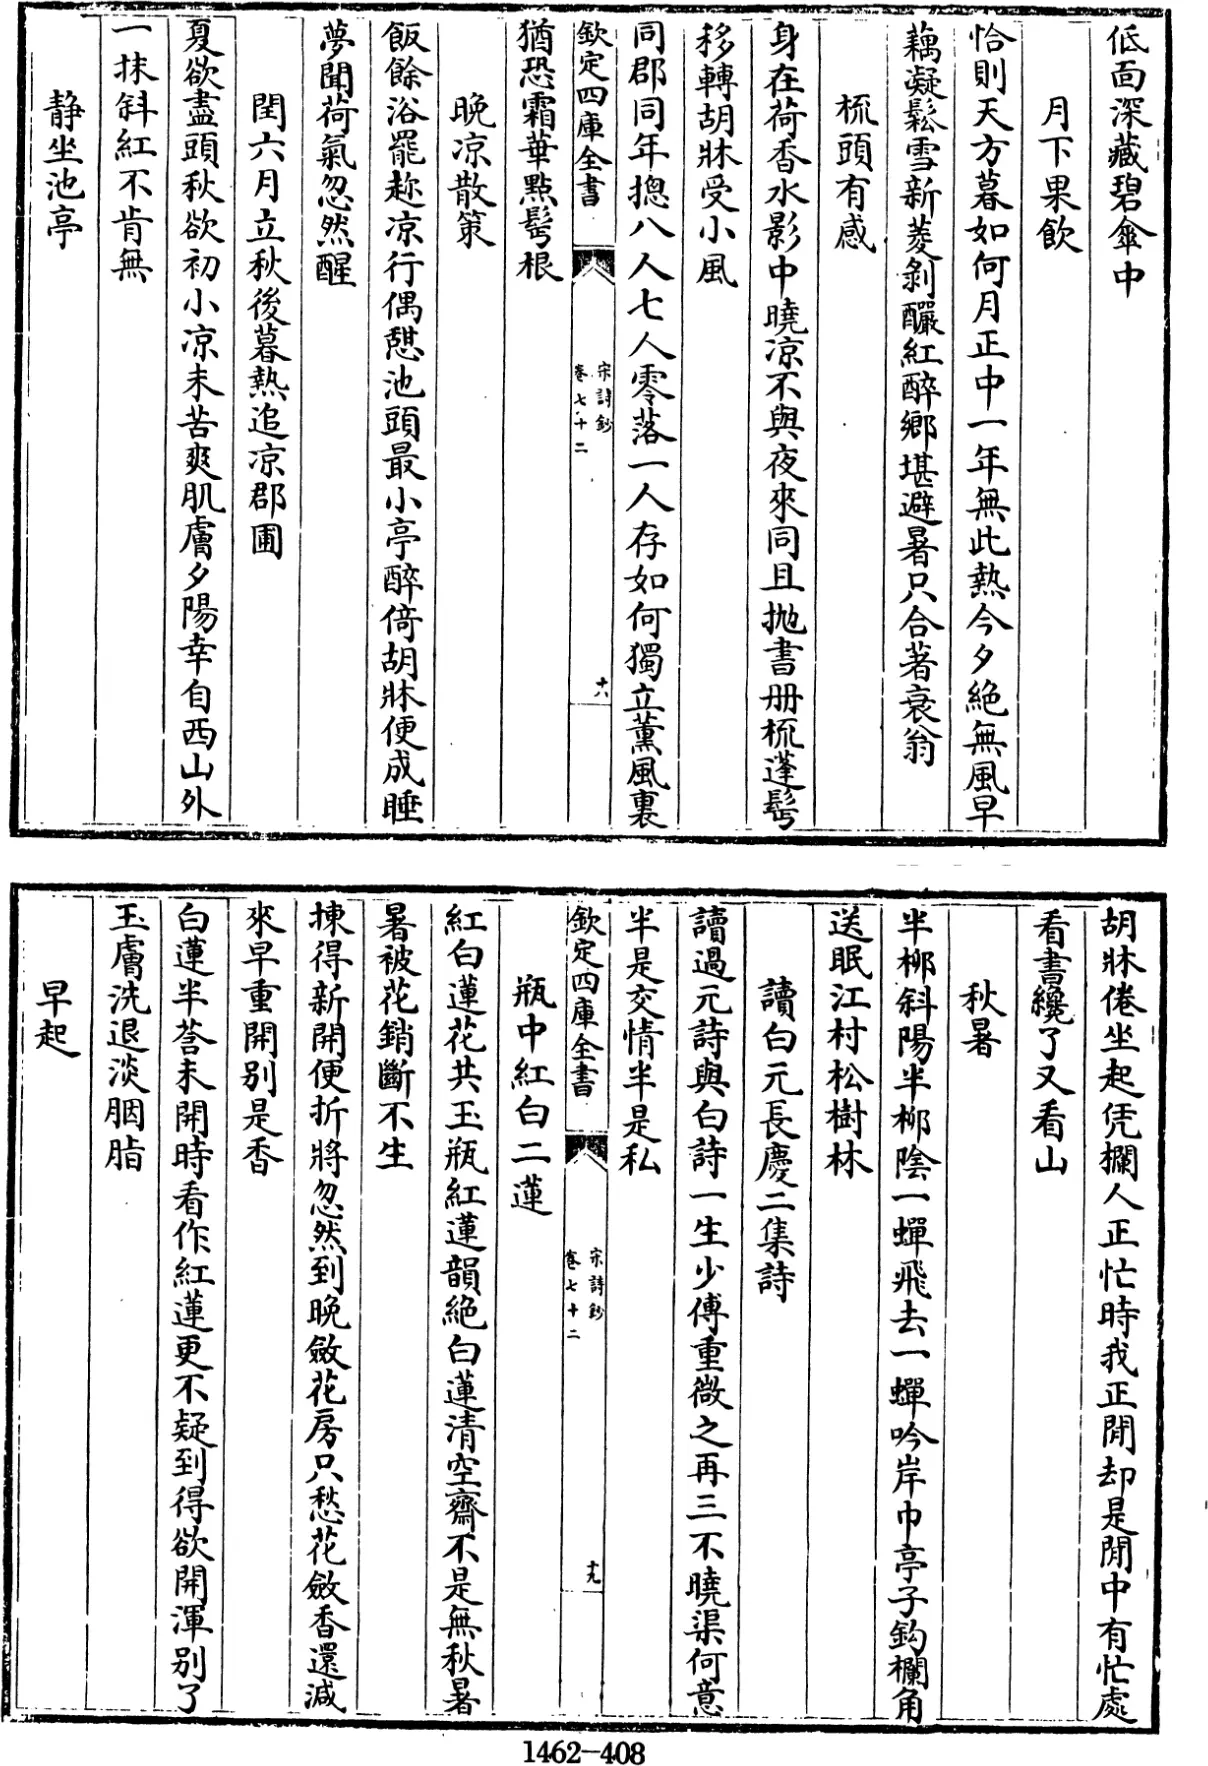 低面深藏碧傘中
月下果飲
恰則天方暮如何月正中一年無此熱今夕絶無風早
藕凝鬆雪新菱剝釅紅醉鄉堪避暑只合著衰翁
梳頭有感
身在荷香水影中曉凉不與夜來同且抛書册梳蓬髩
移轉胡牀受小風
同郡同年揔八人七人零落一人存如何獨立薰風裏
欽定四庫全書
宋詩鈔
卷七十二
十八
猶恐霜華點髩根
晚凉散策
飯餘浴罷趂凉行偶憇池頭最小亭醉倚胡牀便成睡
夢聞荷氣忽然醒
閏六月立秋後暮熱追凉郡圃
夏欲盡頭秋欲初小凉未苦爽肌膚夕陽幸自西山外
一抹斜紅不肯無
靜坐池亭
胡牀倦坐起凭欄人正忙時我正閒却是閒中有忙處
看書纔了又看山
秋暑
半柳斜陽半柳陰一蟬飛去一蟬吟岸巾亭子鈎欄角
送眠江村松樹林
讀白元長慶二集詩
讀過元詩與白詩一生少傅重微之再三不曉渠何意
半是交情半是私
欽定四庫全書
宋詩鈔
卷七十二
十九
瓶中紅白二蓮
紅白蓮花共玉瓶紅蓮韻絶白蓮清空齋不是無秋暑
暑被花銷斷不生
揀得新開便折將忽然到晚斂花房只愁花斂香還减
來早重開别是香
白蓮半荅未開時看作紅蓮更不疑到得欲開渾别了
玉膚洗退淡胭脂
早起
1462-408